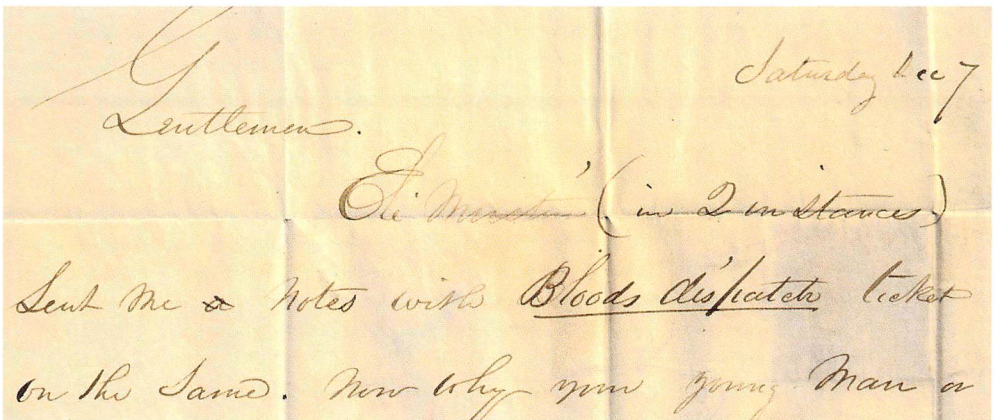 Saturday Dec 7
Gentlemen.
Eli (in 2 instances)
Sent me Notes with Bloods dispatch ticket
on the Same. Now why your young Man or